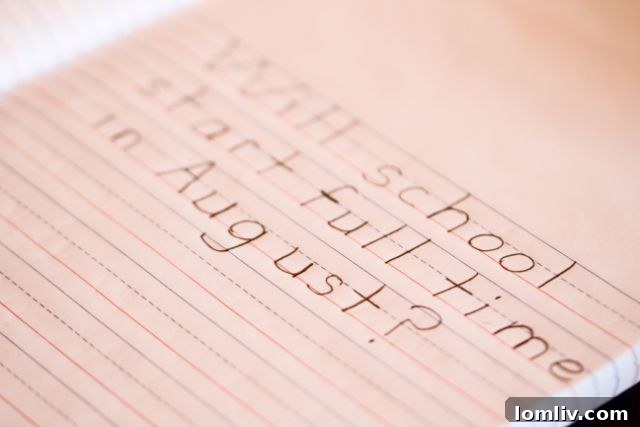 Will school
start full time
in August?
lomliv.com